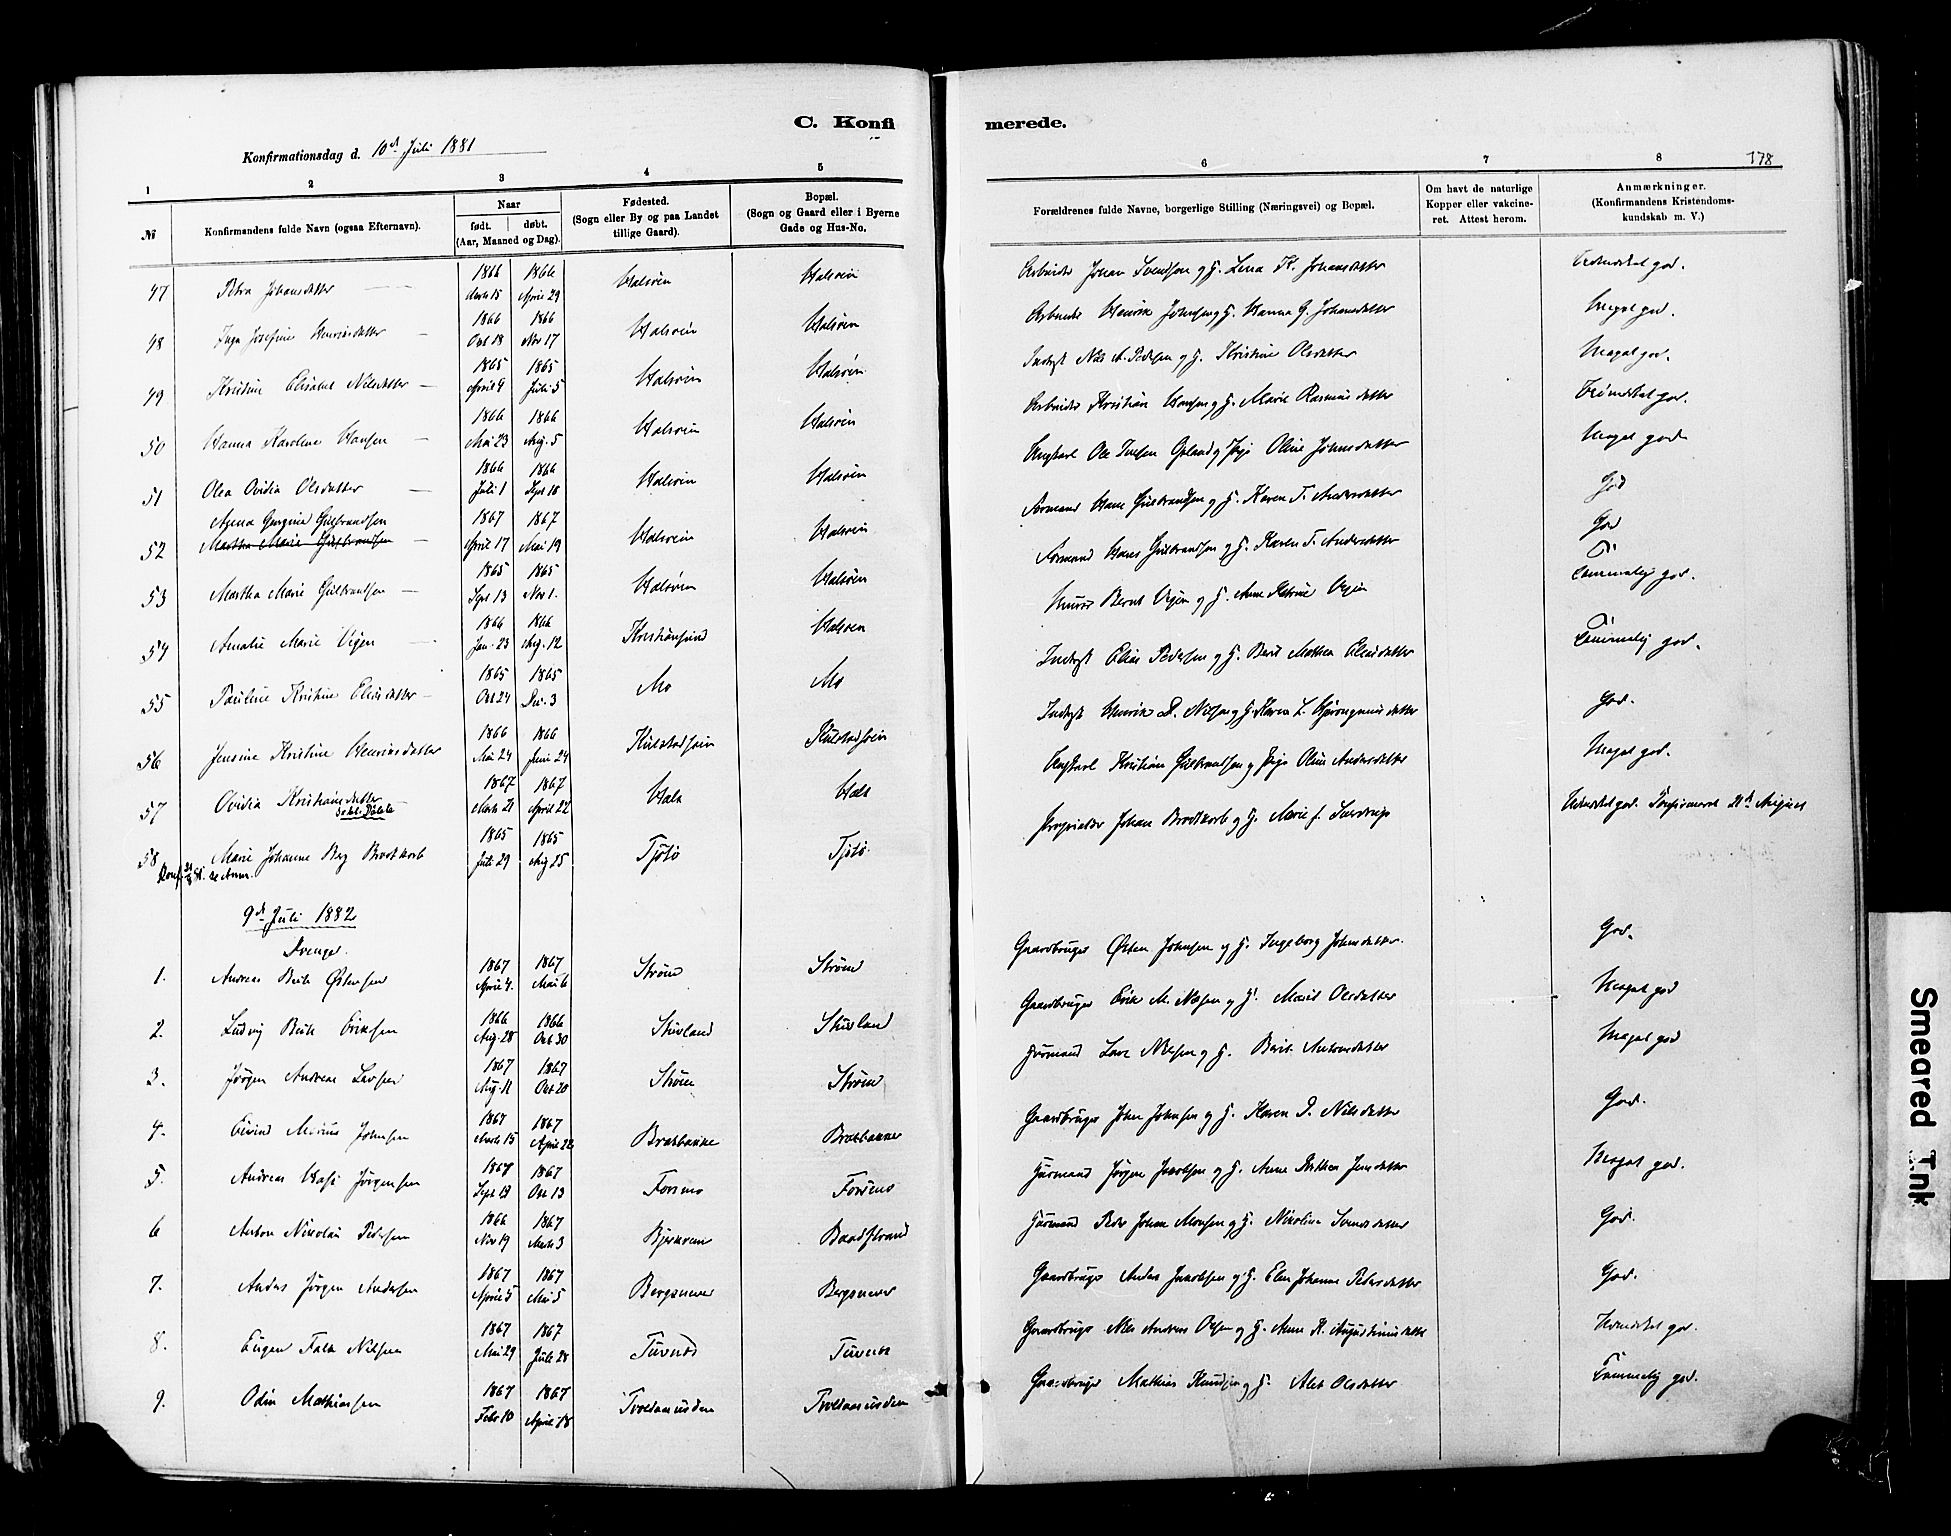 C. Konfi
merede.
Konfirmationsdag d. 10de Juli 1881
178
1 2 3 4 5 6 7 8
№
Konfirmandens fulde Navn (ogsaa Efternavn).
Naar
født. døbt.
(Aar, Maaned og Dag).
Fødested.
(Sogn eller By og paa Landet
tillige Gaard).
Bopæl.
(Sogn og Gaard eller i Byerne
Gade og Hus-No.
Forældrenes fulde Navne, borgerlige Stilling (Næringsvei) og Bopæl.
Om havt de naturlige
Kopper eller vakcine-
ret. Attest herom.
Anmærkninger.
(Konfirmandens Kristendoms-
kundskab m. V.)
47 Petra Johansdatter 1866 Marts 15 1866 April 29 Halsøen Halsøen Arbeider Johan Svendsen og H. Lena K. Johansdatter god.
48 Inga Josefine Henriksdatter 1866 Oct 18 1866 Nov 17 Halsøen Halsøen Arbeider Henrik Johnsen og H. Hanna G. Johansdatter Meget god.
49 Kristine Elisabet Nilsdatter 1865 April 4 1865 Juli 5 Halsøen Halsøen Inderst Nils A. Pedersen og H. Kristine Olsdatter Meget god.
50 Hanna Karoline Hansen 1866 Mai 23 1866 Aug. 5 Halsøen Halsøen Arbeider Kristian Hansen og H. Marie Rasmusdatter god.
51 Olea Ovidia Olsdatter 1866 Juli 1 1866 Sept 16 Halsøen Halsøen Ungkarl Ole og Pige Oline Johnsdatter Meget god
52 Agena Georgine Gulbrandsen
Martha Marie Gulbrandsen 1867 April 17 1867 Mai 19 Halsøen Halsøen Formand Hans Gulbrandsen og H. Karen T. Andersdatter God
53 Martha Marie Gulbrandsen 1865 Sept 13 1865 Nov 1. Halsøen Halsøen Formand Hans Gulbrandsen og H. Karen T. Andersdatter God
54 Amalie Marie Vigen 1866 Jan. 23 1866 Aug. 12 Kristiansund Halsøen Murer Bernt Vigen og H. Anne Petrine Vigen Temmelig god.
55 Pauline Kristine Eliasdatter 1865 Oct 24 1865 Dec. 3 Mo Mo Inderst Elias Pedersen og H. Berit Mathea Eliasdatter Temmelig god.
56 Jensine Kristine Henriksdatter 1866 Mai 24 1866 Juni 24 Kulstadsøen Kulstadsøen Inderst Henrik D. Nilsen og H. Karen L. Hieronymusdatter God.
57 Ovidia Kristiansdatter 1867 Marts 21 1867 April 22 Hals Hals Ungkarl Kristian Gulbrandsen og Pige Oline Andersdatter Meget god.
58 Marie Johanne Berg Brodtkorb 1865 Juli 29 1865 Aug 25 Tjøtø Tjøtø. Proprietær Johan Brodtkorb og H. Marie f. Sverdrup Udmerket god. Konfirmeret 21de August
Konf. 21/8 81. se Anm.
9de Juli 1882
Drenge.
1. Andreas Beck Østensen 1867 April 4. 1867 Mai 6 Strøm Strøm Gaardbruger Østen Johnsen og H. Ingeborg Johnsdatter. God.
2. Ludvig Beck Eriksen 1866 Aug. 28 1866 Oct 30 Stuvland Stuvland Gaardbruger Erik M. Nilsen og H. Marit Olsdatter Meget god
3. Jørgen Andreas Larsen 1867 Aug. 11 1867 Oct 20 Strøm Strøm Husmand Lars Nilsen og H. Berit Antonsdatter Meget god
4. Eivind Marius Johnsen 1867 Marts 15 1867 April 22 Bratbakke Bratbakke Gaardbruger John Johnsen og H. Karen D. Nilsdatter God.
5. Andreas Jørgensen 1867 Sept 13 1867 Oct 13 Forsmo Forsmo Husmand Jørgen Jacobsen og H. Anne Jensdatter Meget god.
6 Anton Nikolai Pedersen 1866 Nov 19 1867 Marts 3 Baadstrand Husmand Peder Johan Monsen og H. Nikolina Svendsdatter God.
7. Anders Jørgen Andersen 1867 April 5 1867 Mai 5 Bergsnever Bergsnever Gaardbruger Anders Jacobsen og H. Elen Johanna Pedersdatter God.
8. Eugen Falk Nilsen 1867 Mai 29 1867 Juli 28 Tuvnes Tuvnes Gaardbruger Nils Andreas Olsen og H. Anne K. Augustinusdatter Udmerket god.
9. Odin Mathiassen 1867 Febr 10 1867 April 18 Troldaasuden Troldaasuden Gaardbruger Mathias Knudsen og H. Alet Olsdatter Temmelig god.
Smeared Ink